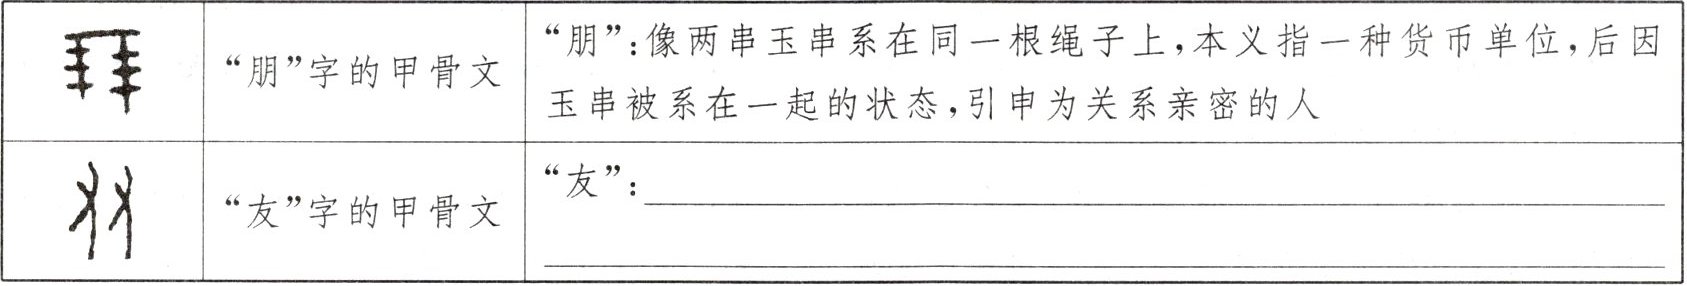 “朋”字的甲骨文
“朋”:像两串玉串系在同一根绳子上,本义指一种货币单位,后因
玉串被系在一起的状态,引申为关系亲密的人
“友”字的甲骨文
“友”: